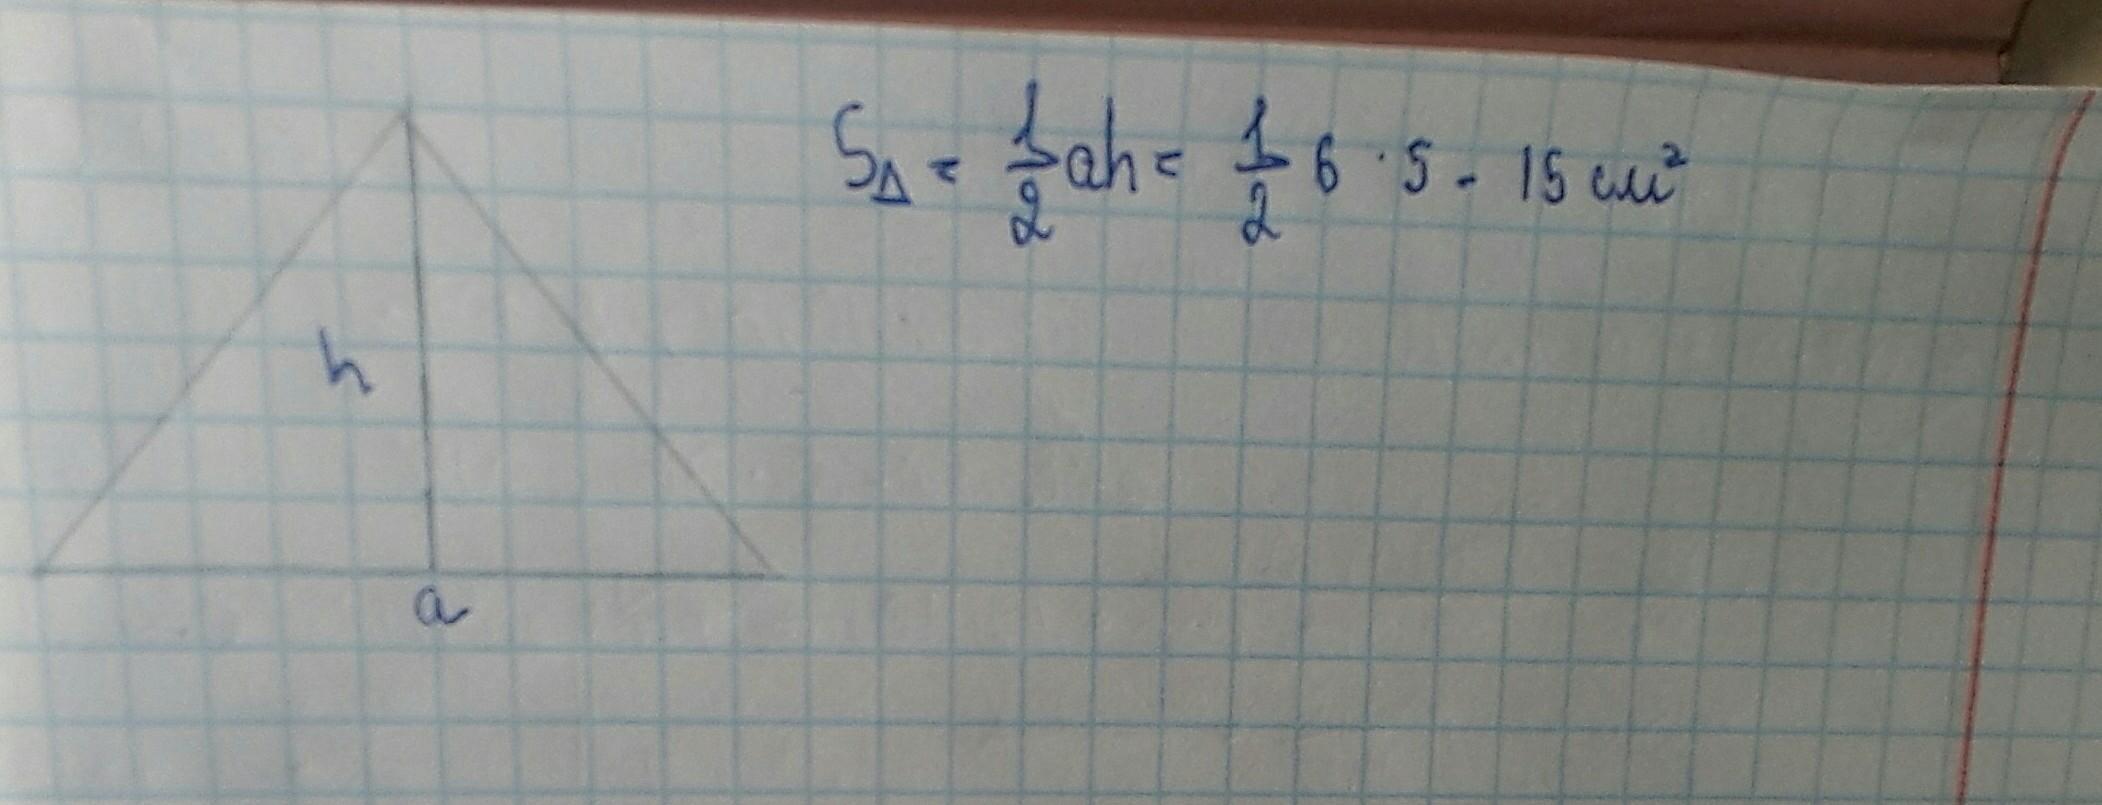 S△ = 1/2 ah = 1/2 6 · 5 - 15 см²
h
a